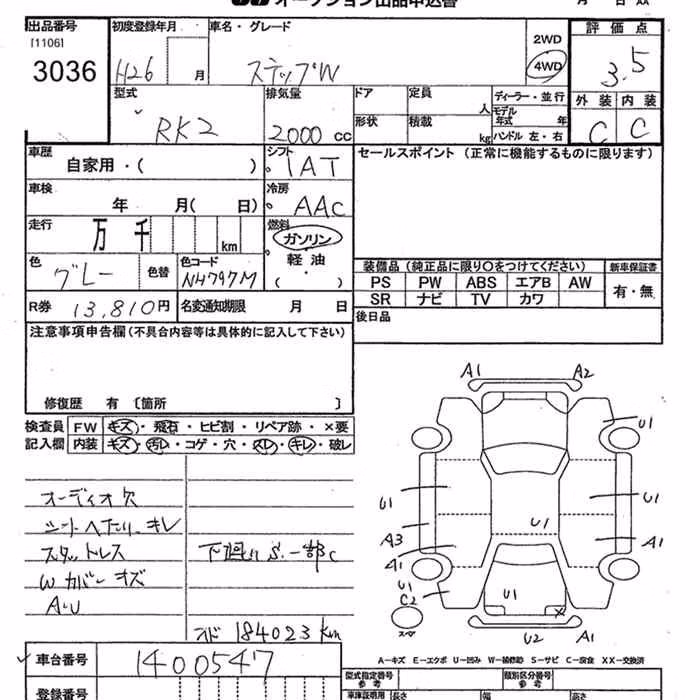 オークション出品申込書
月 日 必着
出品番号 [1106] 3036
初度登録年月 H26 月
車名・グレード ステップW
2WD 4WD
評価点 3.5
型式 RK2
排気量 2000 CC
ドア 定員 人
形状 積載 kg
ディーラー・並行
モデル年式 年
ハンドル 左・右
外装 内装
C C
車歴 自家用・( )
シフト IAT
セールスポイント (正常に機能するものに限ります)
車検 年 月( 日)
冷房 AAC
走行 万 千 km
燃料 ガソリン 軽油 ( )
色 グレー 色替
色コード NH797M
装備品 (純正品に限り○をつけてください) 新車保証書
PS PW ABS エアB AW 有・無
SR ナビ TV カワ
R券 13,810円 名変通知期限 月 日
後日品
注意事項申告欄(不具合内容等は具体的に記入して下さい)
修復歴 有 〔箇所
検査員記入欄
FW キズ・飛石・ヒビ割・リペア跡・×要
内装 キズ・汚レ・コゲ・穴・スレ・キレ・破レ
オーディオ欠
シートヘタリ・キレ
スタットレス
Wカバーキズ
A・U
下廻り S.一部C
メド 184023 km
A1 A2
U1
U1 U1
U1
A3 A1
A1
U1
C2 U1
スペア
×
U2 A1
A-キズ E-エクボ U-凹み W-補修跡 S-サビ C-腐食 XX-交換済
車台番号 1400547
型式指定番号 参考
類別区分番号 参考
登録番号
車庫証明用 参考 長さ 幅 高さ